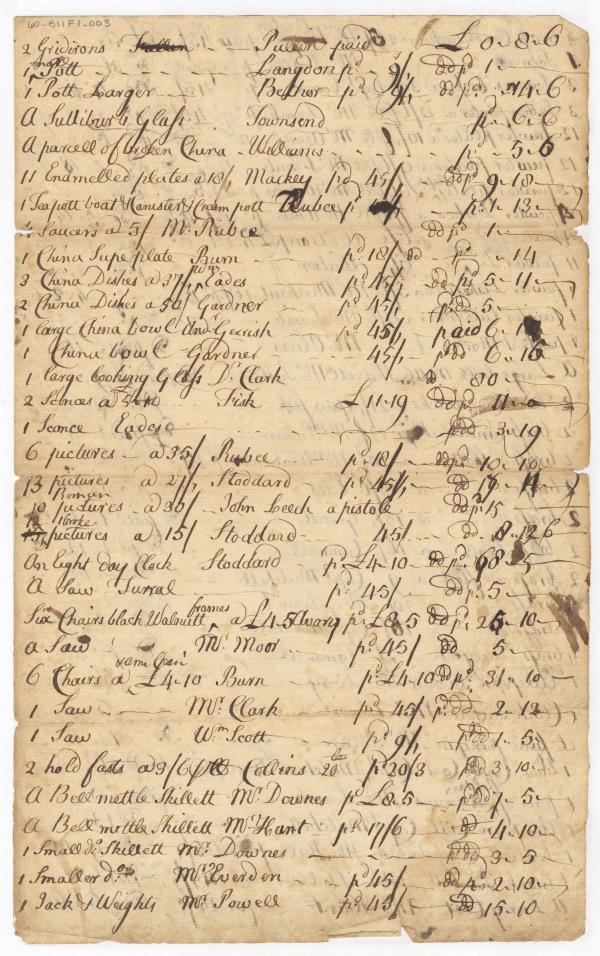 60-511F1-003
2 Gridirons Pullin paid £ 0 „ 8 „ 6
1 small Pott - - - - - Langdon pd 9/ dd pd 1 „
1 Pott Larger - - - Bethor pd 9/ dd pd „ 14 „ 6
A Sullibub Glass Townsend pd „ 6 „ 6
A parcell of broken China - Williams - - - pd „ 5 „ 6
11 Enamelled plates a 18/, Mackey pd 45/ dd pd 9 „ 18 „
1 Teapott boat & Canister & Cream pott Rubee pd pd 1 „ 13 „
4 Saucers a 5/ Mr Rubee dd pd 1 „
1 China Supe plate Burn - pd 18/ dd pd „ 14
3 China Dishes a 37/, Wm Eades pd 45/, dd pd 5 „ 11 „
2 China Dishes a 50/ Gardner pd 45/, dd 5 „
1 large China bowl And Gerrish pd 45/, paid 6 „
1 China bowl Gardner 45/, pdd 6 „ 10
1 large Looking Glass Dr Clark dd 80 „
2 Sconces a Fisk £ 11 „ 19 dd pd 11 „ 0
1 Sconce Eades pdd 3 „ 19
6 pictures - a 35/ Rubee - pd 18/ dd pd 10 „ 10
13 pictures - a 27/, Stoddard - pd 45/, dd 17 „ 11
10 Roman pictures - a 30/ - John Leech a pistole dd pd 15
broke pictures a 15/ Stoddard - 45/ dd 8 „ 12 6
An Eight day Clock Stoddard - pd £4 „ 10 - dd pd 98 „ 5
A Saw Turral - pd 45/ - dd pd 5 „
Six Chairs black Walnutt frames a £4 „ 5 Ivory pd £8 „ 5 dd pd 25 „ 10 -
a Saw Mr Moor - pd 45/ dd 5 „
6 Chairs a £4 „ 10 Burn - pd £4 „ 10 dd pd 31 „ 10 -
1 Saw - Mr Clark - pd 45/ pd dd 2 „ 12
1 Saw Wm Scott - pd 9/, pdd 1 „ 5
2 hold fasts a 3/6 Collins 20 pd 20/3 pdd 3 „ 10
A Bell mettle Skillett Mr Downes pd £8 „ 5 - pdd 7 „ 5
A Bell mettle Skillett Mr Hant pd 17/6 dd 4 „ 10
1 Small do Skillett Mr Downes - - - pdd 3 „ 5
1 Smaller do Mr Everden - pd 45/ dd pd 2 „ 10
1 Jack & Weights Mr Powell - pd 45/ dd 15 „ 10